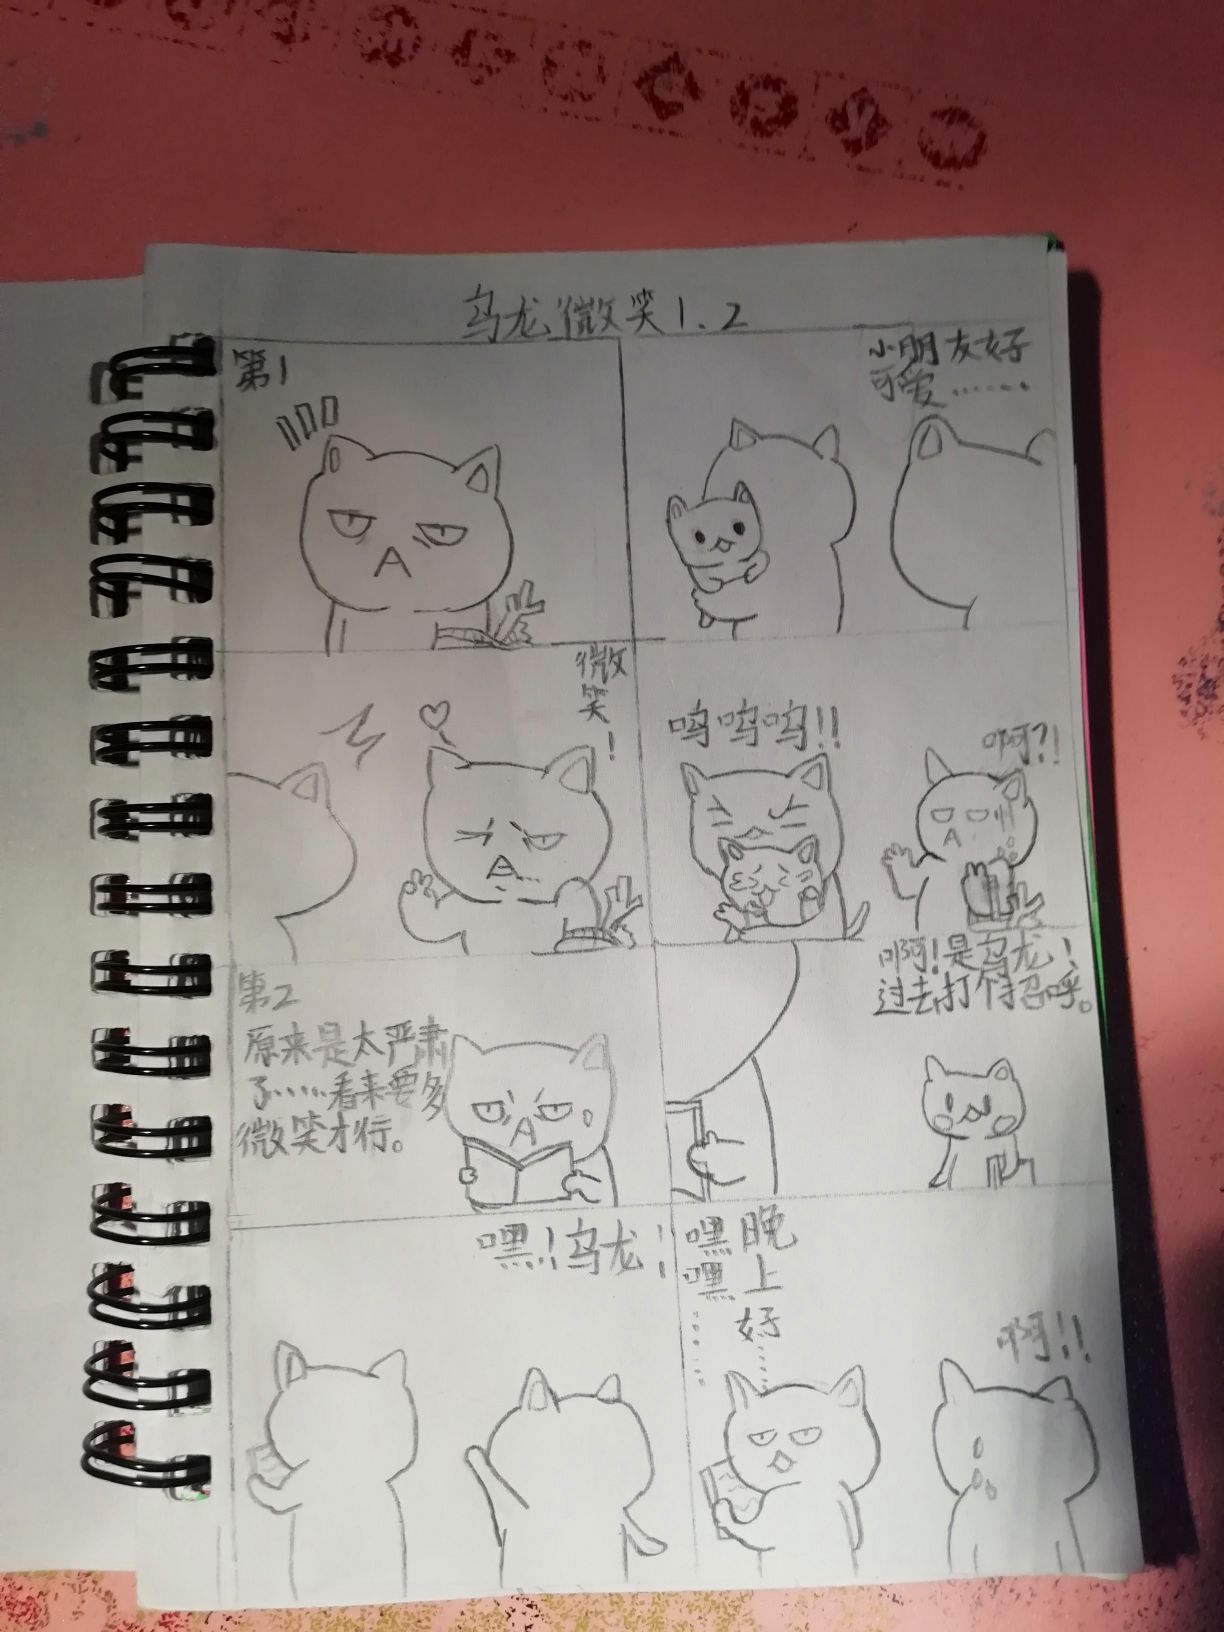 乌龙微笑1.2
第1
小朋友好
可爱……
微笑！
呜呜呜!!
啊?!
第2
原来是太严肃
了……看来要多
微笑才行。
啊!是乌龙!
过去打个招呼。
嘿!乌龙!
晚上好……
嘿嘿……
啊!!